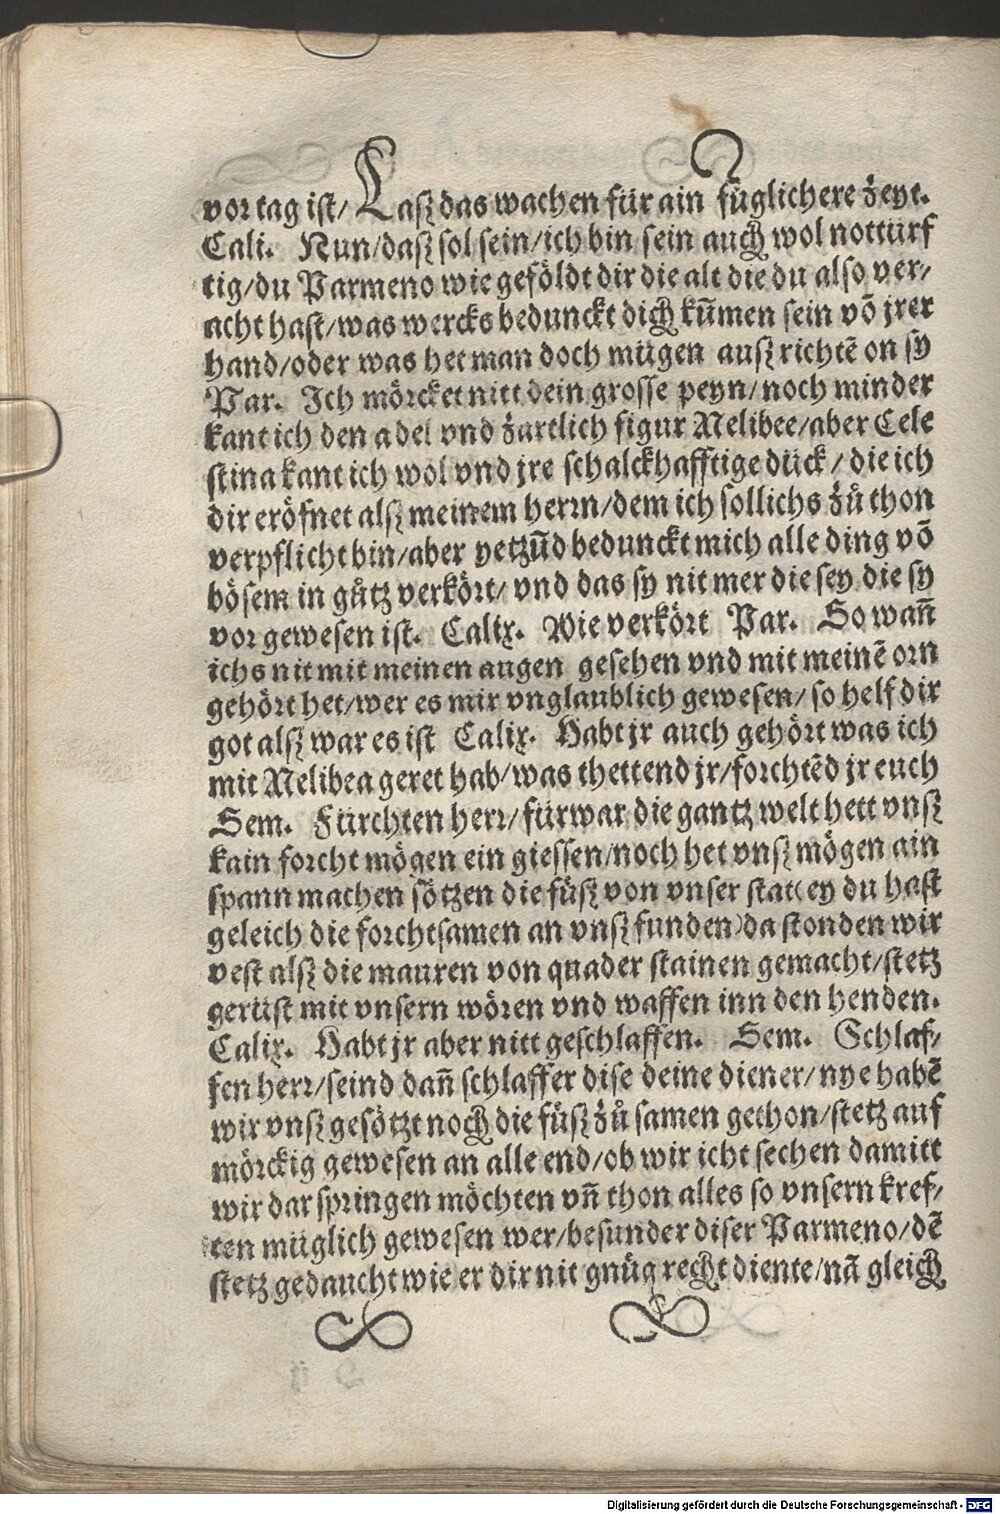 vor tag ist/ Lasz das wachen für ain füglichere zeyt.
Cali. Nun/dasz sol sein/ich bin sein auch wol notturf
tig/du Parmeno wie geföldt dir die alt die du also ver/
acht hast/was wercks bedunckt dich kum̃en sein võ jrer
hand/oder was het man doch mügen ausz richtẽ on sy
Par. Ich mörcket nitt dein grosse peyn/noch minder
kant ich den adel vnd zartlich figur Melibee/aber Cele
stina kant ich wol vnd jre schalckhafftige dück/die ich
dir eröfnet alsz meinem herrn/dem ich sollichs zů thon
verpflicht bin/aber yetzũd bedunckt mich alle ding võ
bösem in gůtz verkört/vnd das sy nit mer die sey die sy
vor gewesen ist. Calix. Wie verkört Par. So wañ
ichs nit mit meinen augen gesehen vnd mit meinẽ orn
gehört het/wer es mir vnglaublich gewesen/so helf dir
got alsz war es ist Calix. Habt jr auch gehört was ich
mit Melibea geret hab/was thettend jr/forchtẽd jr euch
Sem. Fürchten herr/fürwar die gantz welt hett vnsz
kain forcht mögen ein giessen/noch het vnsz mögen ain
spann machen sötzen die füsz von vnser stat(ey du hast
geleich die forchtsamen an vnsz funden)da stonden wir
vest alsz die mauren von quader stainen gemacht/stetz
gerüst mit vnsern wören vnd waffen inn den henden.
Calix. Habt jr aber nitt geschlaffen. Sem. Schlaf/
fen herr/seind dañ schlaffer dise deine diener/nye habẽ
wir vnsz gesötzt noch die füsz zů samen gethon/stetz auf
mörckig gewesen an alle end/ob wir icht sechen damitt
wir dar springen möchten vñ thon alles so vnsern kref/
ten müglich gewesen wer/besunder diser Parmeno/dẽ
stetz gedaucht wie er dir nit gnůg recht diente/nã gleich
Digitalisierung gefördert durch die Deutsche Forschungsgemeinschaft - DFG